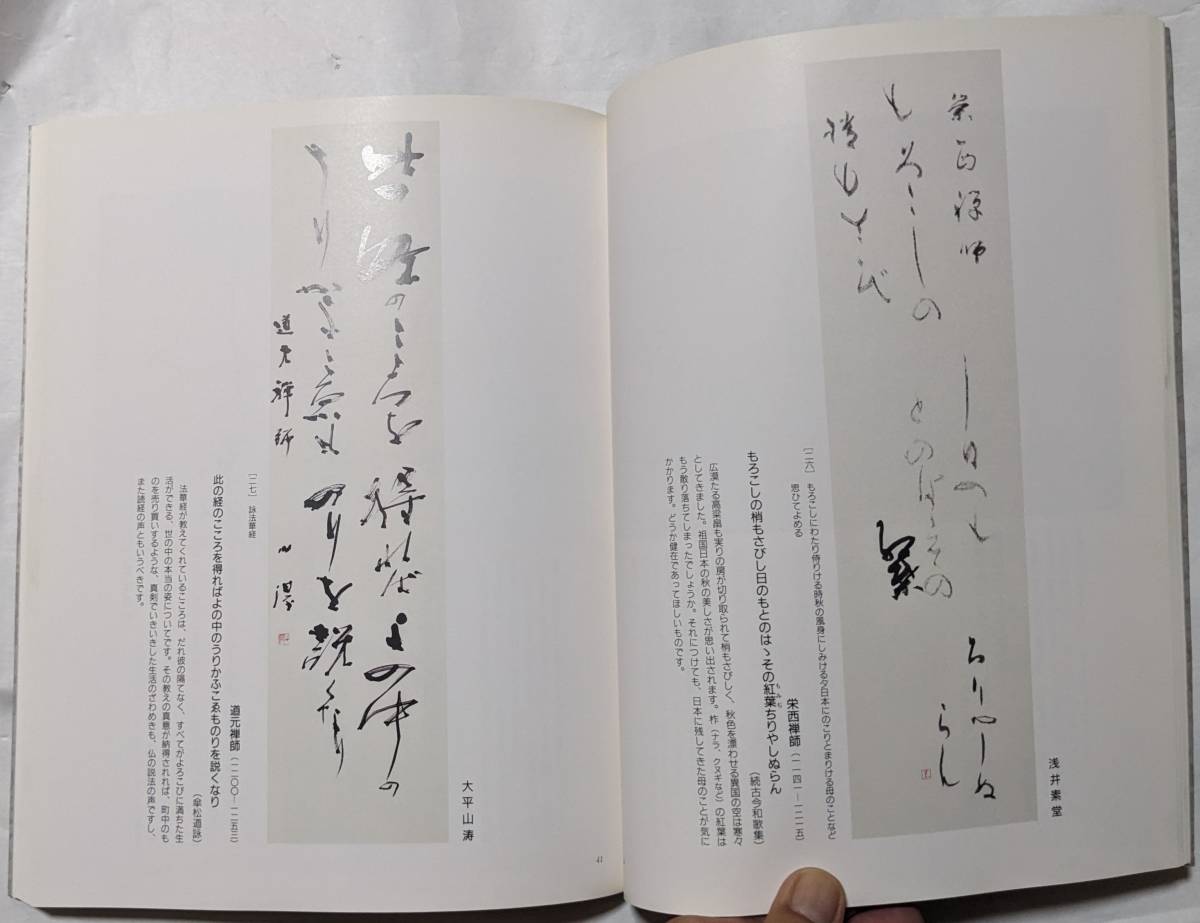 栄西禅師
もろこしの
梢もさび
し日のも
とのはゝその
紅葉
ちりやしぬ
らん
浅井素堂
[二六] もろこしにわたり侍りける時秋の風身にしみける夕日本にのこりとまりける母のことなど
思ひてよめる
栄西禅師(一一四一ー一二一五)
もろこしの梢もさびし日のもとのはゝその紅葉ちりやしぬらん
もみぢ
(続古今和歌集)
広漠たる高梁畠も実りの房が切り取られて梢もさびしく、秋色を漂わせる異国の空は寒々
としてきました。祖国日本の秋の美しさが思い出されます。柞(ナラ、クヌギなど)の紅葉は
もう散り落ちてしまったでしょうか。それにつけても、日本に残してきた母のことが気に
かかります。どうか健在であってほしいものです。
此経のこゝろを得ればよの中の
うりかふこゑものりを説くなり
道元禅師
大平山濤
[二七] 詠法華経
道元禅師(一二〇〇ー一二五三)
此の経のこころを得ればよの中のうりかふこゑものりを説くなり
(傘松道詠)
法華経が教えてくれているこころは、だれ彼の隔てなく、すべてがよろこびに満ちた生
活ができる、世の中の本当の姿についてです。その教えの真意が納得されれば、町中のも
のを売り買いするような、真剣でいきいきした生活のざわめきも、仏の説法の声ですし、
また読経の声ともいうべきです。
41